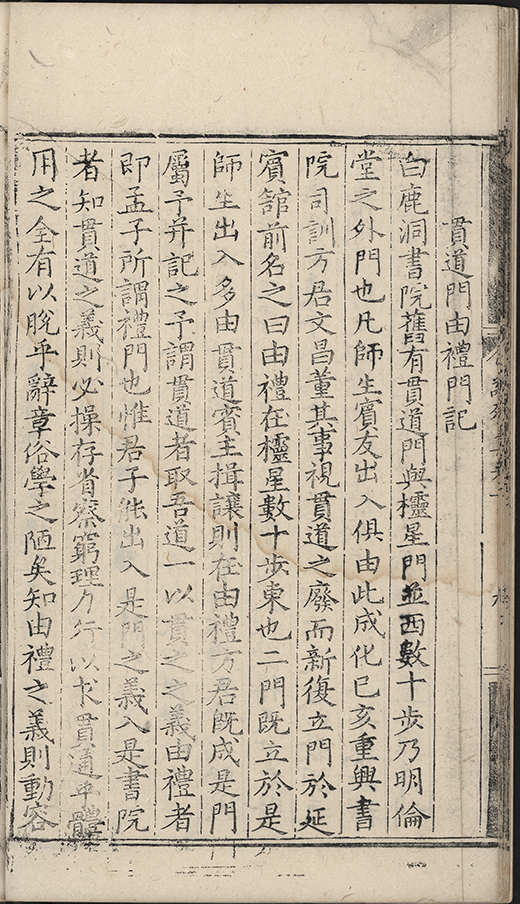 貫道門由禮門記
白鹿洞書院舊有貫道門與櫺星門並西數十步乃明倫
堂之外門也凡師生賓友出入俱由此成化己亥重興書
院司訓方君文昌董其事視貫道之廢而新復立門於延
賓舘前名之曰由禮在櫺星數十步東也二門既立於是
師生出入多由貫道賓主揖讓則在由禮方君既成是門
屬予并記之予謂貫道者取吾道一以貫之之義由禮者
即孟子所謂禮門也惟君子能出入是門之義入是書院
者知貫道之義則必操存省察窮理力行以求貫通乎體
用之全有以脫乎辭章俗學之陋矣知由禮之義則動容